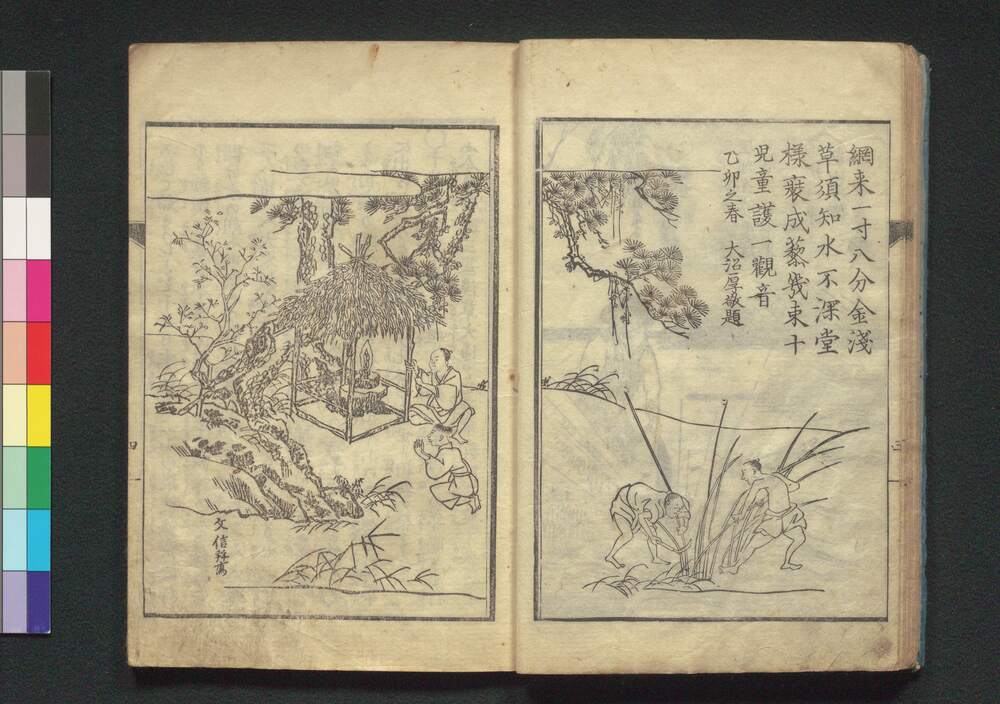 網来一寸八分金淺
草須知水不深堂
様褒成藜㡬束十
児童護一觀音
乙卯之春 大沼厚敬題
三
四
文信